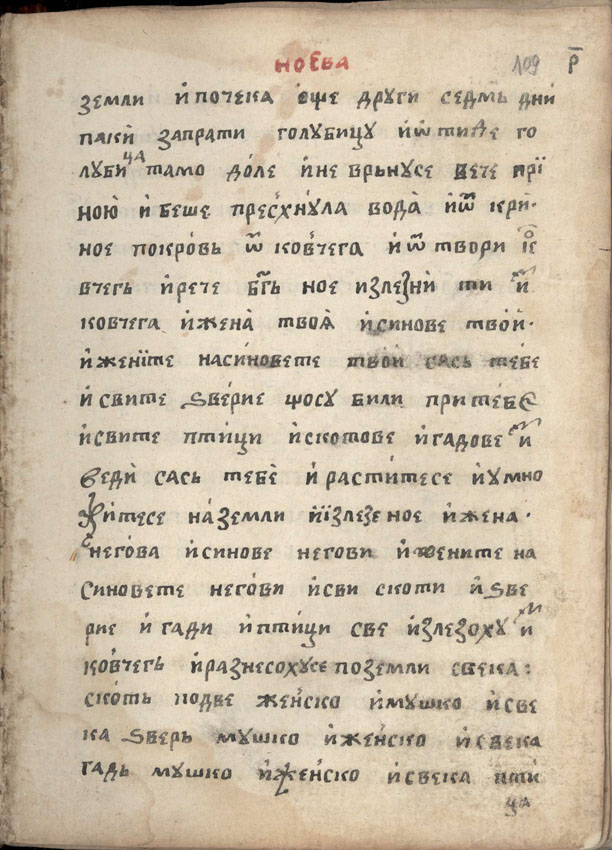 ноева 109 р҃
земли и҆ почека еще други седмь дни
паки̇̀ запрати голубицу и҆ ѿтиде го
луби ца тамо до́ле и҆ не врьнусе вече при
ною̀ и҆ беше пресх́нула вода̀ и҆ ѿ кри·
ное покро́вь ѿ ков̾чега и҆ ѿтвори ко
вчегь и҆ рече бг҃ь ное и҆злезни̇̀ ти и҆
ковчега и҆ жена̀ твоѧ̀ и҆ синове тво́и·
и҆ жені́те на синовете тво́и сась те́бе
и҆ свите ѕве́рие щосу били при те́бе
и҆ свите пти́ци и҆ скотове и҆ гадове и҆
веди̇̀ сась тебѐ и҆ расти́тесе и҆ умно
жи́тесе на́ земли и҆ и҆злезе ное и҆ жена·
него́ва и҆ синове негови и҆ жените на
синовете него́ви и҆ сви скоти и҆ ѕве
рие и҆ гади и҆ пти́ци све и҆злезоху и҆
ков̾чегь и҆ разнесохусе по земли свека :
ско́ть подве жен́ско и҆ мушко и҆ све
ка ѕверь мушко и҆ жен́ско и҆ свека
гадь мушко и҆ жен́ско и҆ свека пти́
ца